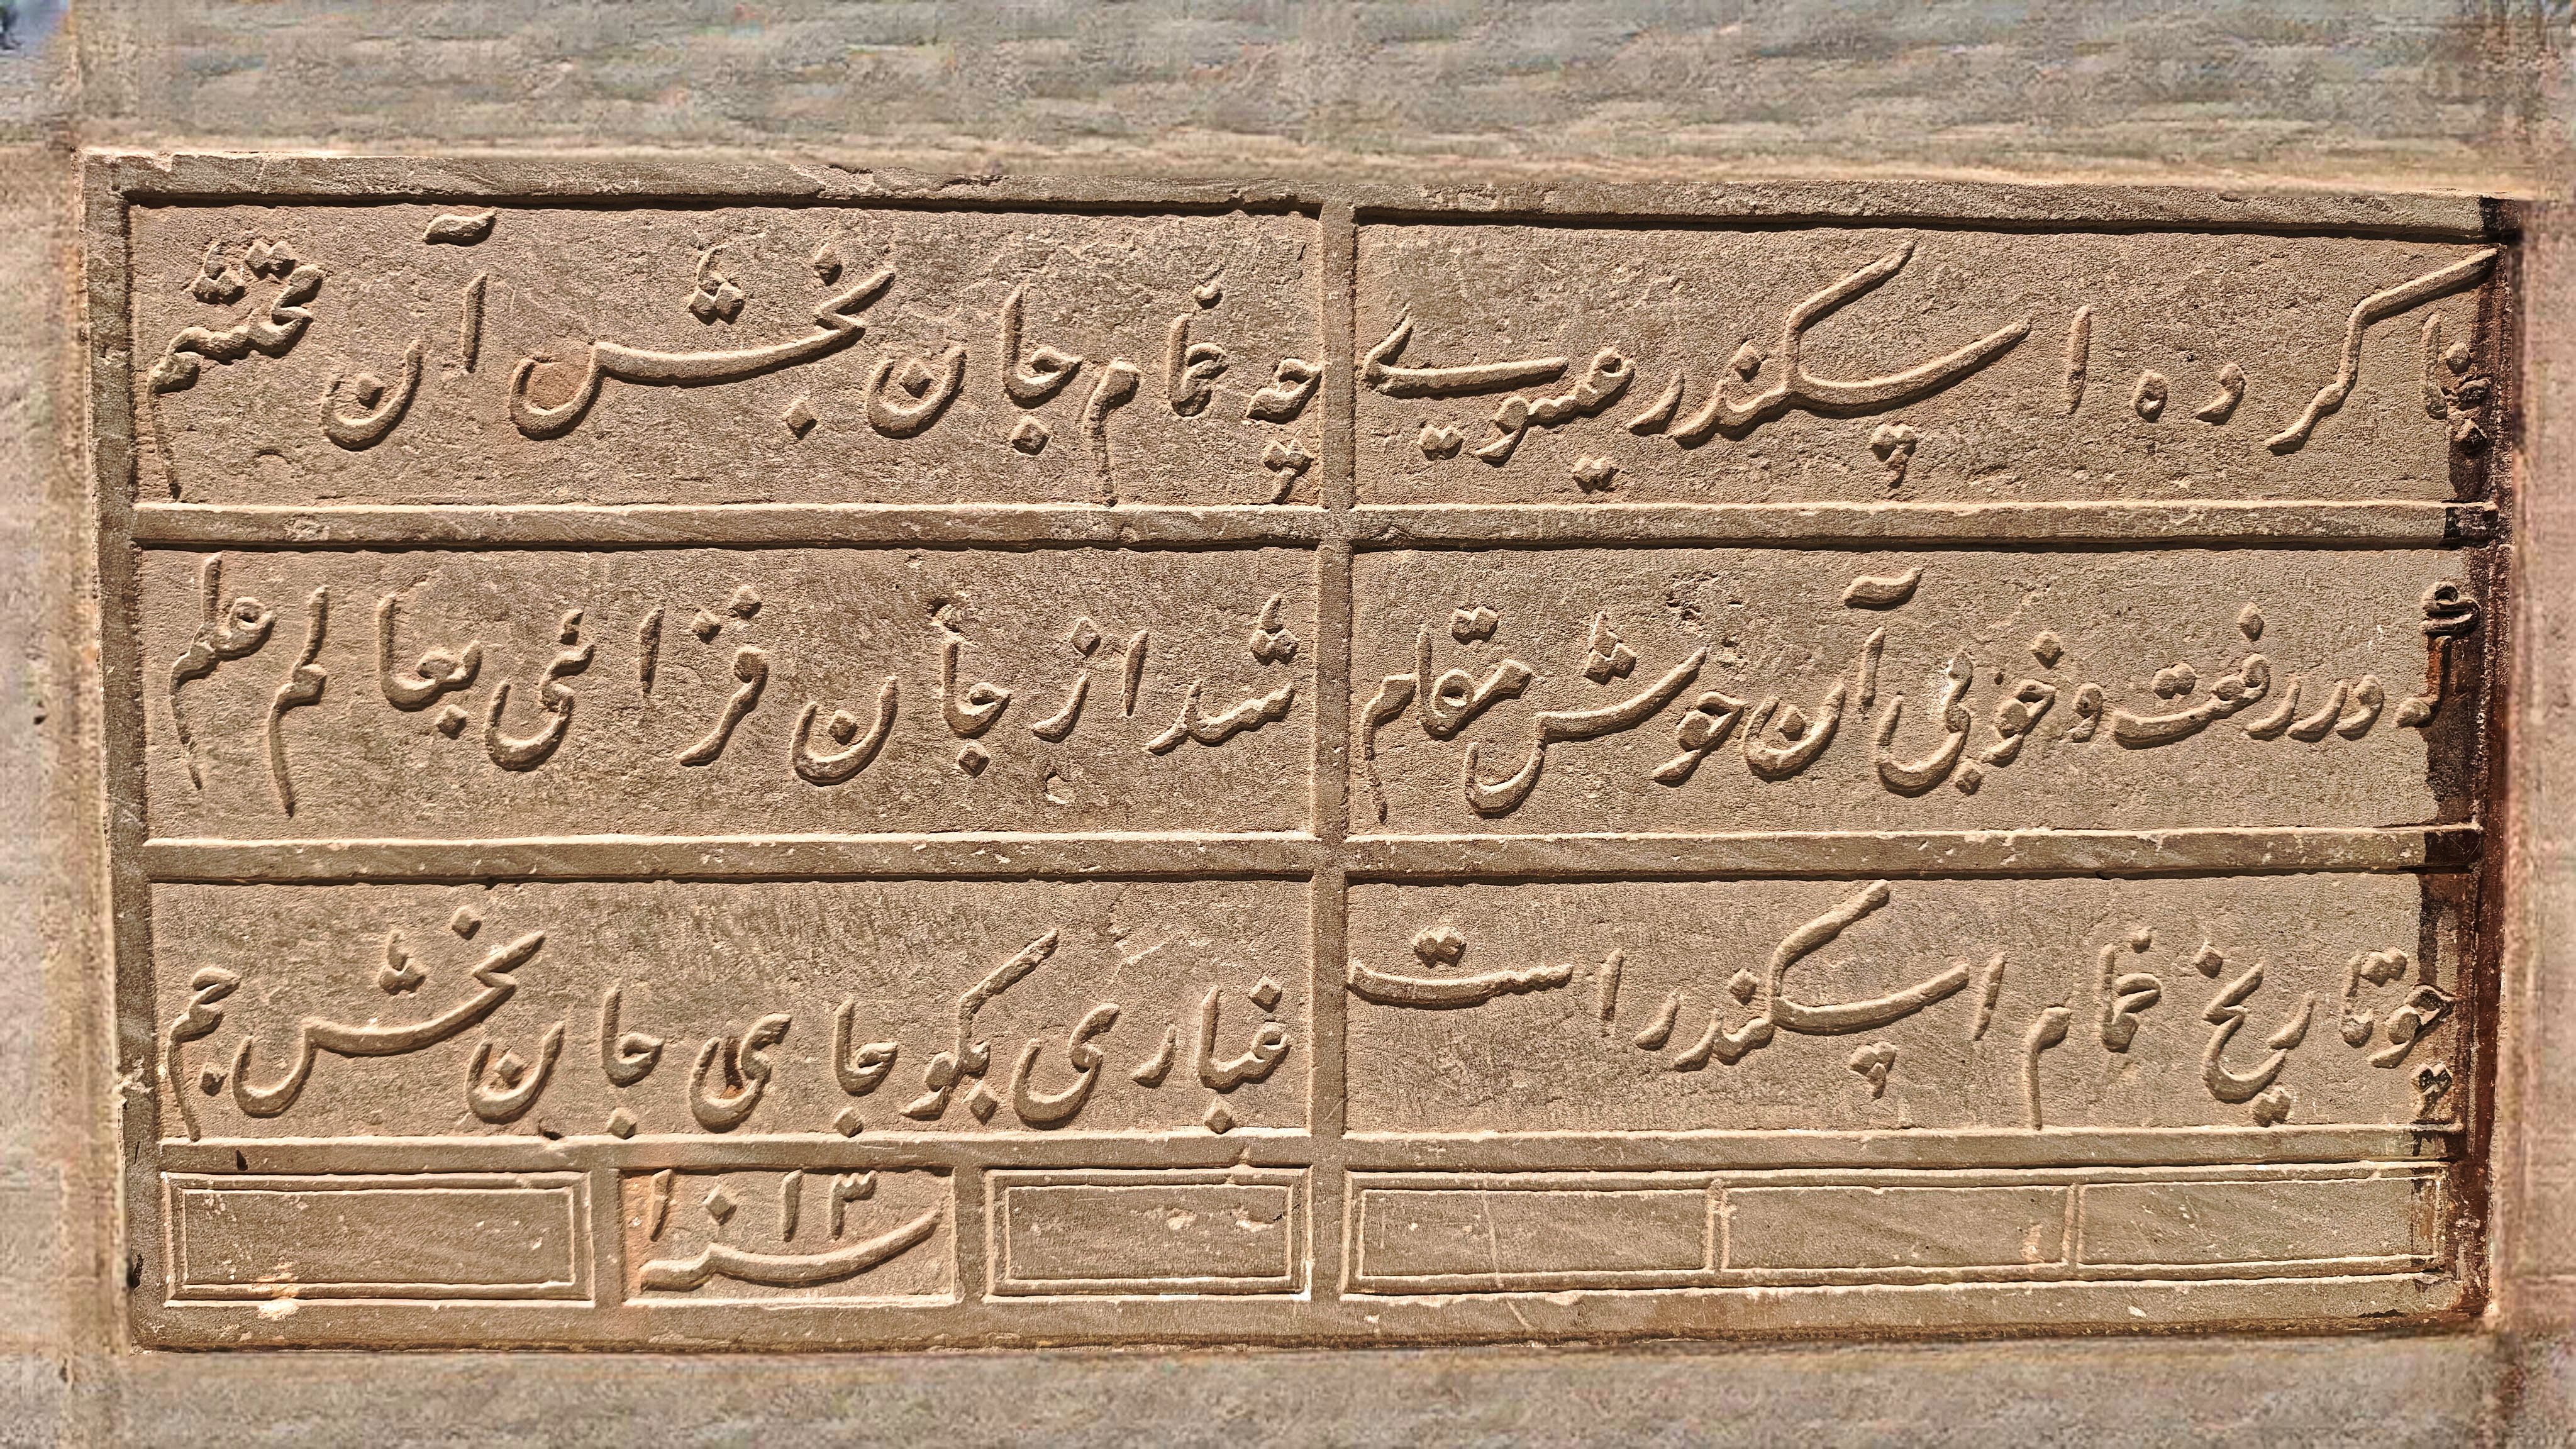 بنا کرده اسکندر عیسوی
چه حمام جان بخش آن محتشم
که در رفعت و خوبی آن خوش مقام
شد از جان فزائی بعالم علم
چو تاریخ حمام اسکندر است
غباری بگو جای جان بخش جم
سنه ۱۰۱۳